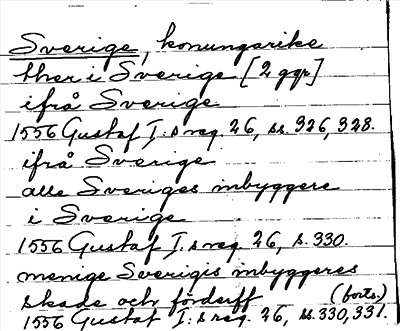 Sverige, konungarike
ther i Sverige [2 ggr]
ifrå Sverige
1556 Gustaf I:s reg. 26, ss. 326, 328.
ifrå Sverige
alle Sveriges inbyggere
i Sverige
1556 Gustaf I:s reg. 26, s. 330.
menige Sverigis inbyggeres
skade och förderff (forts.)
1556 Gustaf I:s reg. 26, ss. 330, 331.